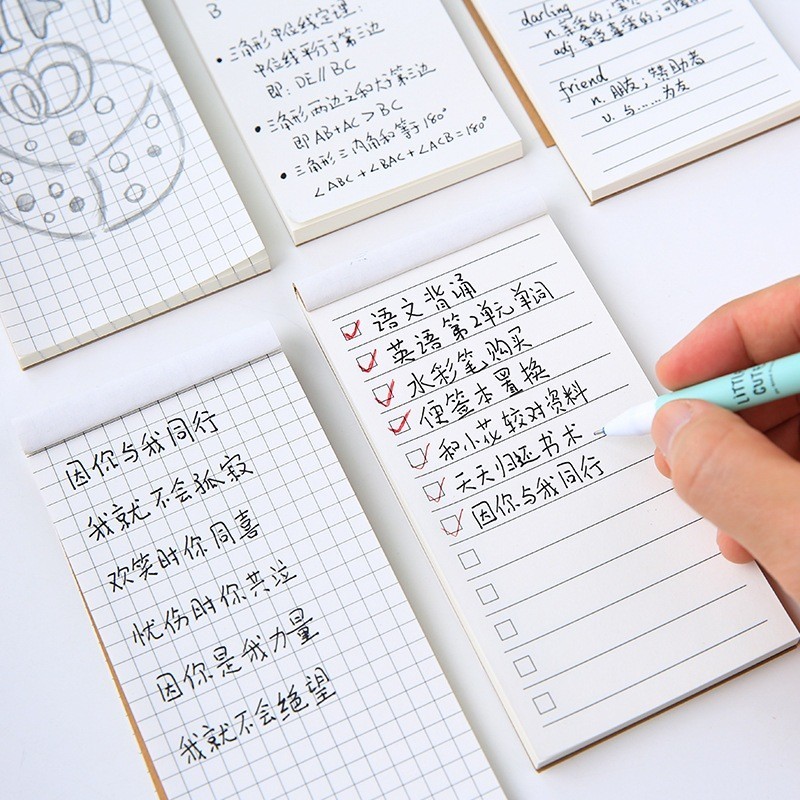 B
• 三角形中位线定理:
中位线平行于第三边
即: DE // BC
• 三角形两边之和大于第三边
即 AB+AC > BC
• 三角形三内角和等于180°
∠ABC + ∠BAC + ∠ACB = 180°
darling
n. 亲爱的; 宝
adj. 备受喜爱的; 可
friend
n. 朋友; 赞助者
v. 与……为友
语文背诵
英语第2单元单词
水彩笔购买
便签本置换
和小花较对资料
天天归还书术
因你与我同行
因你与我同行
我就不会孤寂
欢笑时你同喜
忧伤时你共泣
因你是我力量
我就不会绝望
LITTLE
CUTE